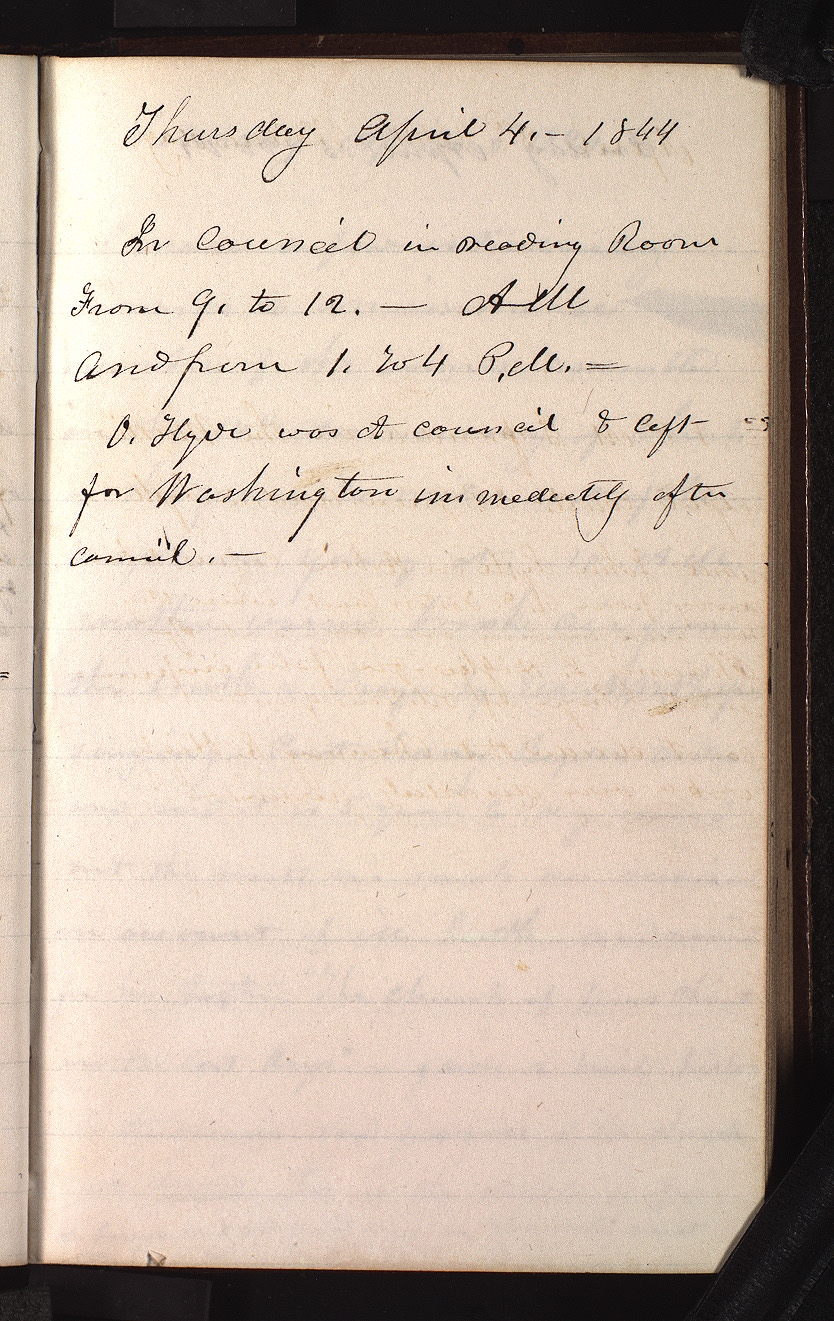 Thursday April 4.— 1844
In Council in reading Room
From 9. to 12. — AM
And from 1. to 4 P.M. =
O. Hyde was at council & left
for Washington immediately after
council. —